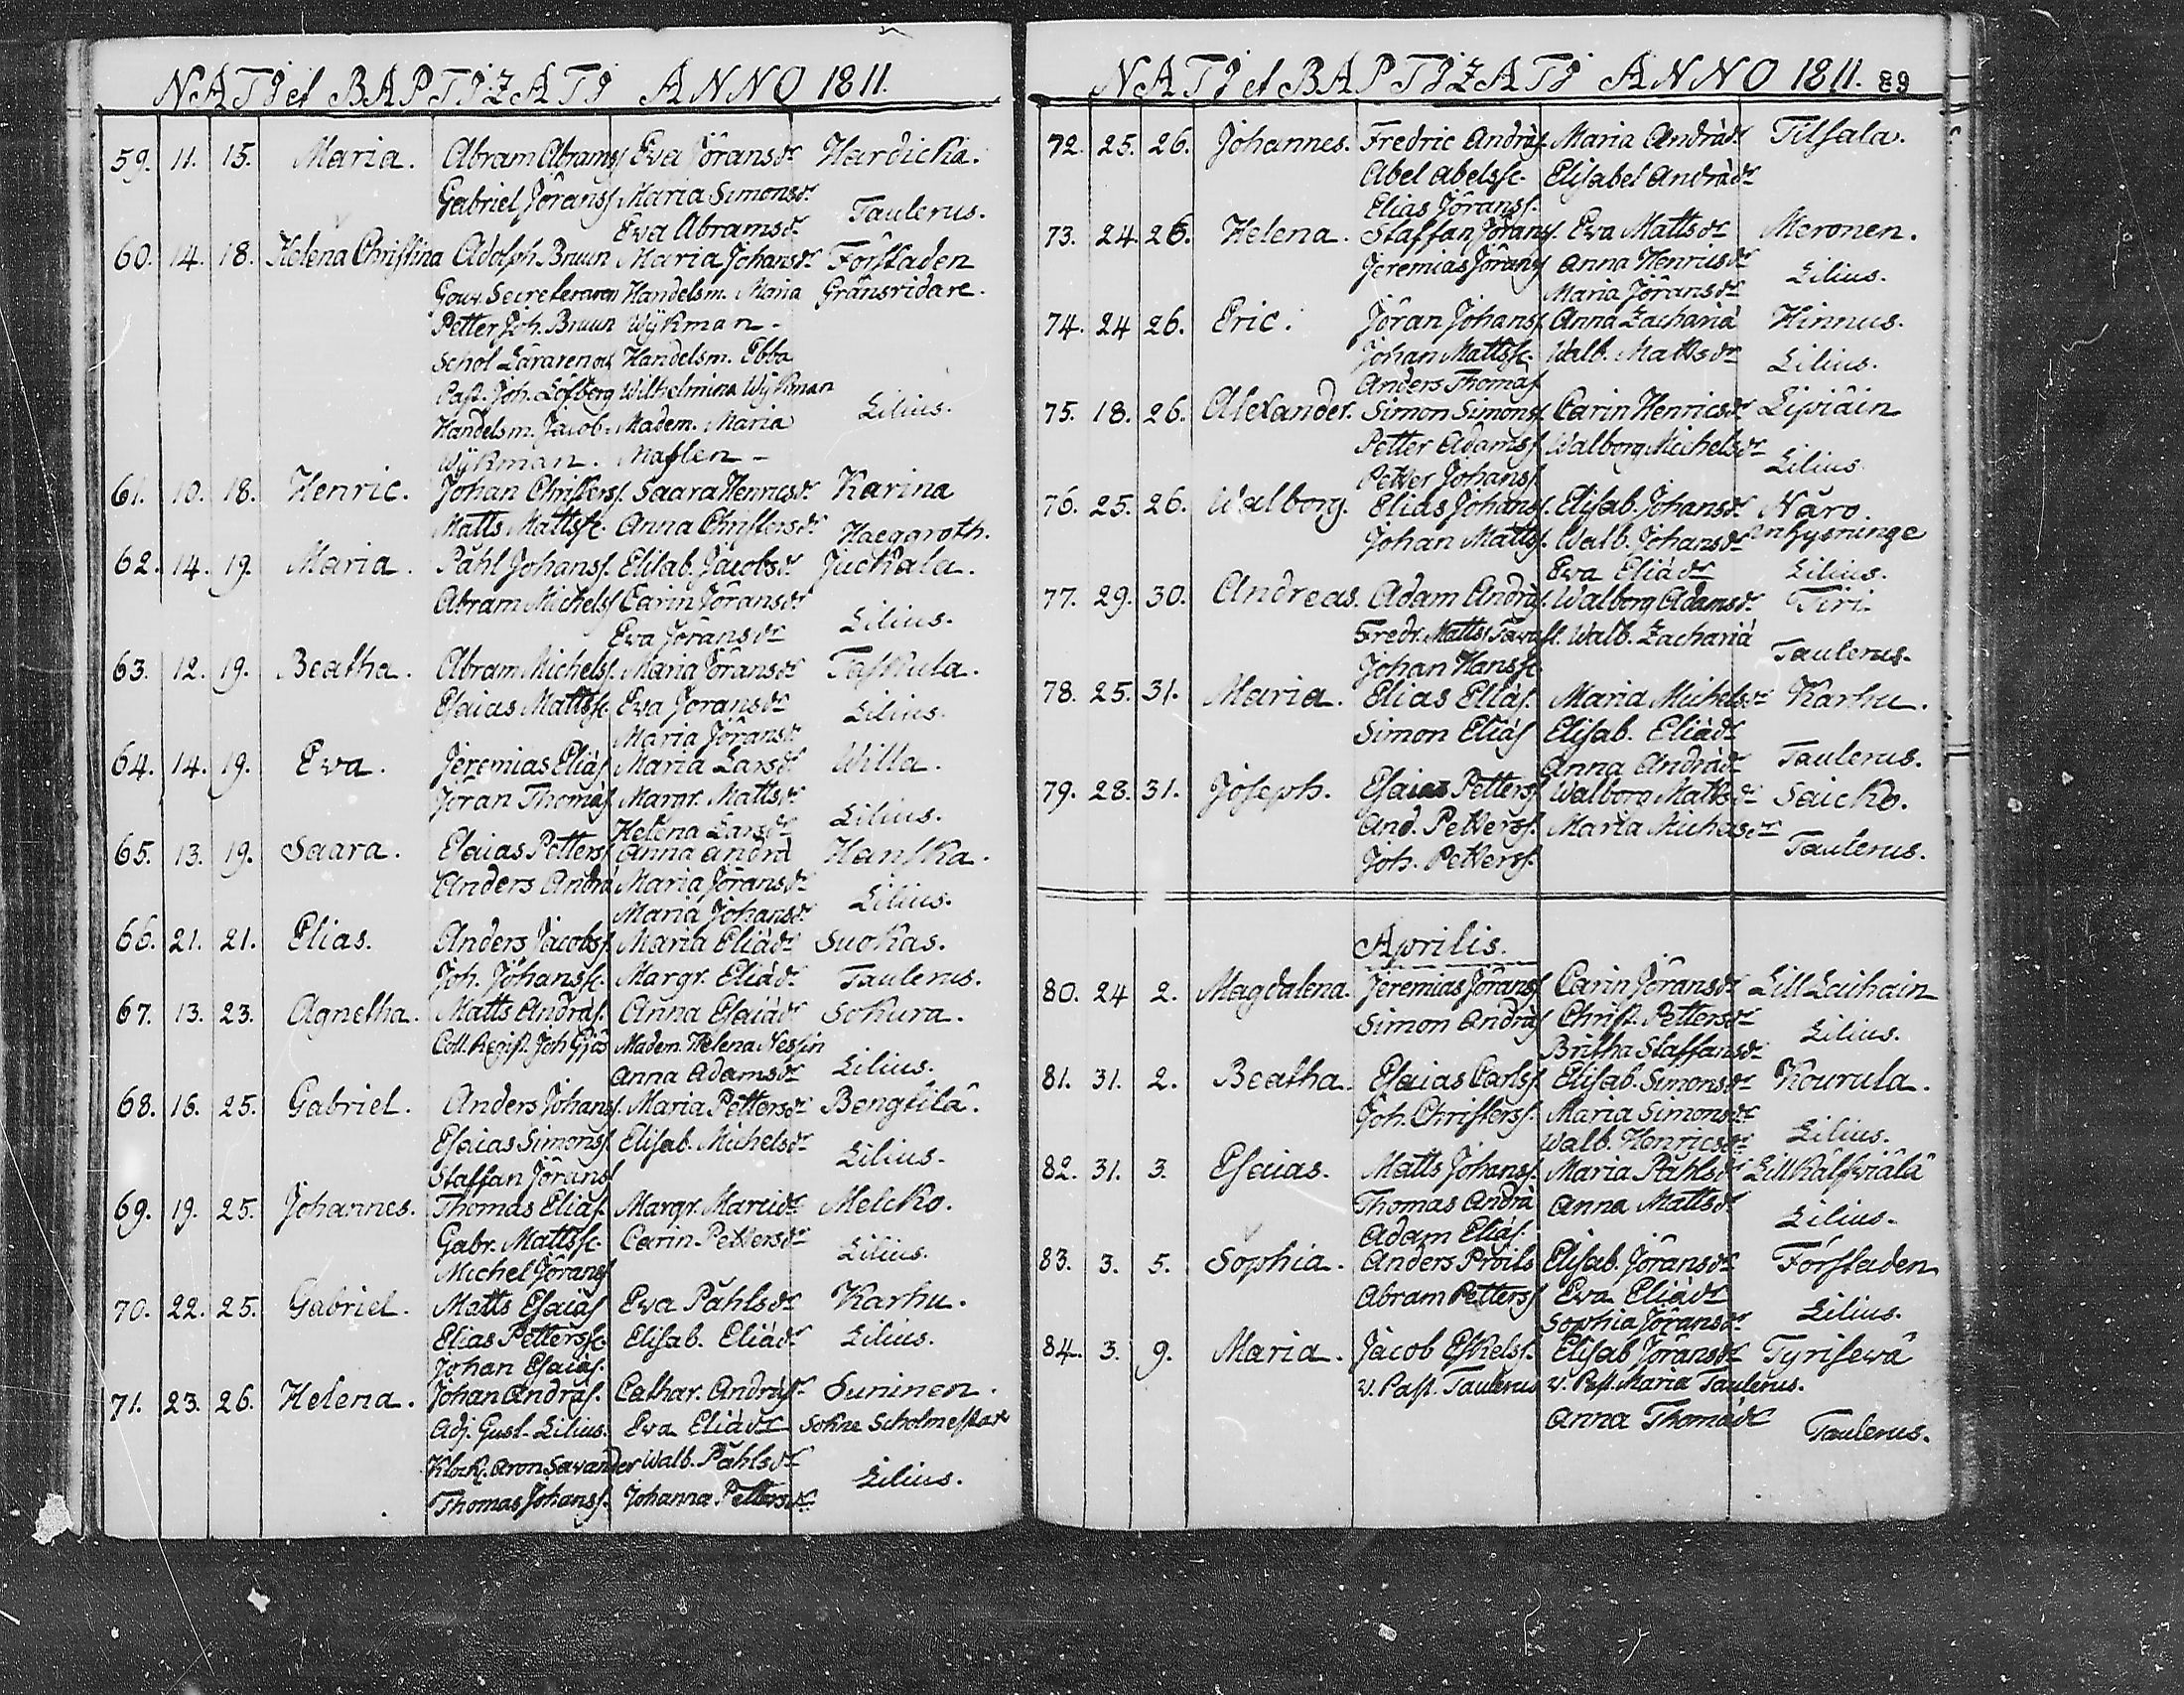 NATI et BAPTIZATI ANNO 1811.
59. 11. 15. Maria. Abram Abramsf Eva Jöransdr Hardicka.
Gabriel Jöransf Maria Simonsdr
Eva Abramsdr Taulerus.
60. 14. 18. Helena Christina Adolph Bruun Maria Johansdr Förstaden
Gouv. Secreteraren Handelsm. Maria Gränsridare.
Petter Joh. Bruun Wÿkman.
Schol Läraren och Handelsm. Ebba
Past. Joh. Löfberg Wilhelmina Wÿkman
Handelsm. Jacob Madem. Maria Lilius.
Wÿkman. Maslen
61. 10. 18. Henric. Johan Christersf. Saara Henricsdr Karina
Matts Mattsf. Anna Christersdr Haegaroth.
62. 14. 19. Maria. Påhl Johansf. Elisab. Jacobsdr Juckala.
Abram Michelsf Carin Jöransdr
Eva Jöransdr Lilius.
63. 12. 19. Beatha. Abram Michelsf. Maria Jöransdr Taskula.
Esaias Mattsf. Eva Jöransdr Lilius.
Maria Jöransdr
64. 14. 19. Eva. Jeremias Eliåf Maria Larsdr Willa.
Jöran Thomåf Margr. Mattsdr
Helena Larsdr Lilius.
65. 13. 19. Saara. Esaias Pettersf Anna Andrå Hanska.
Anders Andrå Maria Jöransdr
Maria Johansdr Lilius.
66. 21. 21. Elias. Anders Jacobsf Maria Eliådr Suokas.
Joh. Johansf. Margr. Eliådr Taulerus.
67. 13. 23. Agnetha. Matts Andråf. Anna Esaiådr Sokura.
Coll. Regist. Joh Gjös Madem. Helena Nessin
Anna Adamsdr Lilius.
68. 16. 25. Gabriel. Anders Johansf. Maria Pettersdr Bengtilä.
Esaias Simonsf. Elisab. Michelsdr Lilius.
Staffan Jöransf
69. 19. 25. Johannes. Thomas Eliåf. Margr. Marcidr Melcko.
Gabr. Mattsf. Carin Pettersdr Lilius.
Michel Jöransf
70. 22. 25. Gabriel. Matts Esaiåf Eva Påhlsdr Karhu.
Elias Pettersf. Elisab. Eliådr Lilius.
Johan Esaiåf.
71. 23. 26. Helena. Johan Andråf. Cathar. Andrådr Suninen.
Adj. Gust. Lilius. Eva Eliådr Sokne Scholmestar
Klock. Aron Savander Walb. Påhlsdr Lilius.
Thomas Johansf. Johanna Pettersdr
NATI et BAPTIZATI ANNO 1811. 89
72. 25. 26. Johannes. Fredric Andråf. Maria Andrådr Tilsala.
Abel Abelsf. Elisabel Andrådr
Elias Jöransf.
73. 24. 26. Helena. Staffan Jöransf. Eva Mattsdr Meronen.
Jeremias Jöransf Anna Henricsdr Lilius.
Maria Jöransdr
74. 24 26. Eric. Jöran Johansf. Anna Zachariå Hinnus.
Johan Mattsf. Walb. Mattsdr Lilius.
Anders Thomåf
75. 18. 26. Alexander. Simon Simonsf. Carin Henricsdr Lipiäin
Petter Adamsf. Walborg Michelsdr Lilius.
Petter Johansf.
76. 25. 26. Walborg. Elias Johansf. Elisab. Johansdr Näro.
Johan Mattsf. Walb. Johansdr Inhysninge
Eva Eliådr Lilius.
77. 29. 30. Andreas. Adam Andråf. Walborg Adamsdr Tiri.
Fredr. Matts Tavast. Walb. Zachariå Taulerus.
Johan Hansf.
78. 25. 31. Maria. Elias Eliåf. Maria Michelsdr Karhu.
Simon Eliåf Elisab. Eliådr
Anna Andrådr Taulerus.
79. 28. 31. Joseph. Esaias Pettersf. Walborg Mattsdr Saicko.
And. Pettersf. Maria Michasdr Taulerus.
Joh. Pettersf.
Aprilis.
80. 24 2. Magdalena. Jeremias Jöransf Carin Jöransdr Lill Laihain
Simon Andråf Christ. Pettersdr Lilius.
Britha Staffansdr
81. 31. 2. Beatha. Esaias Carlsf. Elisab. Simonsdr Kourula.
Joh. Christersf. Maria Simonsdr
Walb. Henricsdr Lilius.
82. 31. 3. Esaias. Matts Johansf. Maria Påhlsdr Lill Kälsviälä
Thomas Andrå Anna Mattsdr Lilius.
Adam Eliåf.
83. 3. 5. Sophia. Anders Proils Elisab. Jöransdr Förstaden
Abram Pettersf Eva Eliådr Lilius.
Sophia Jöransdr
84. 3. 9. Maria. Jacob Eskelsf. Elisab Jöransdr Tyrisevä
v. Past. Taulerus v. Past. Maria Taulerus.
Anna Thomådr Taulerus.